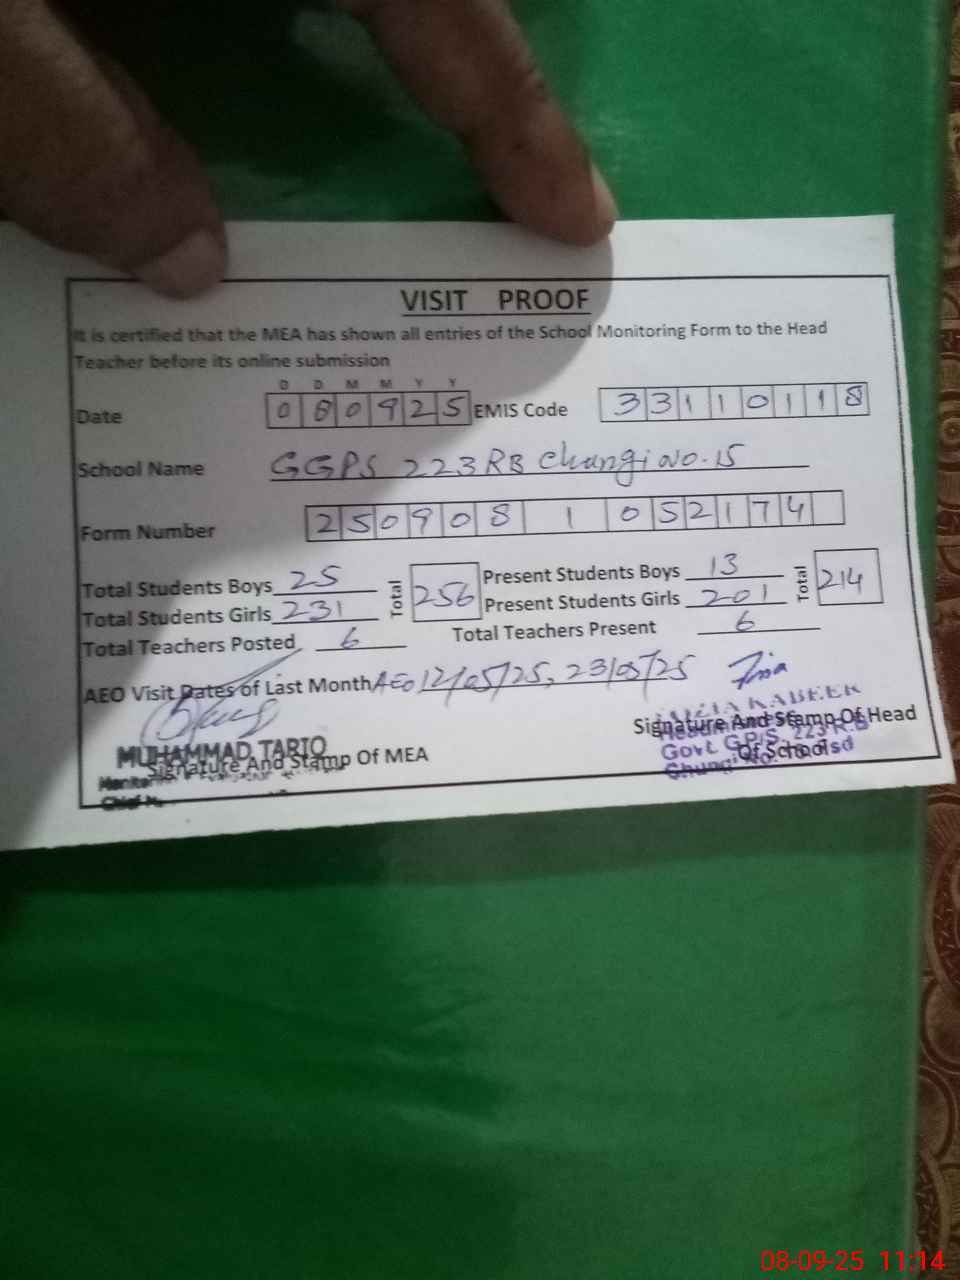 VISIT PROOF
It is certified that the MEA has shown all entries of the School Monitoring Form to the Head
Teacher before its online submission
D D M M Y Y
Date 080925 EMIS Code 33110118
School Name GGPS 223RB Chungi No.15
Form Number 250908 1 052174
Total Students Boys 25 Total 256 Present Students Boys 13 Total 214
Total Students Girls 231 Present Students Girls 201
Total Teachers Posted 6 Total Teachers Present 6
AEO Visit Dates of Last Month AEO 12/05/25, 23/05/25
KABEER
Signature And Stamp Of Head
Of School
Govt. G.P/S. 223 R.B
Chungi No.
MUHAMMAD TARIQ
Signature And Stamp Of MEA
08-09-25 11:14